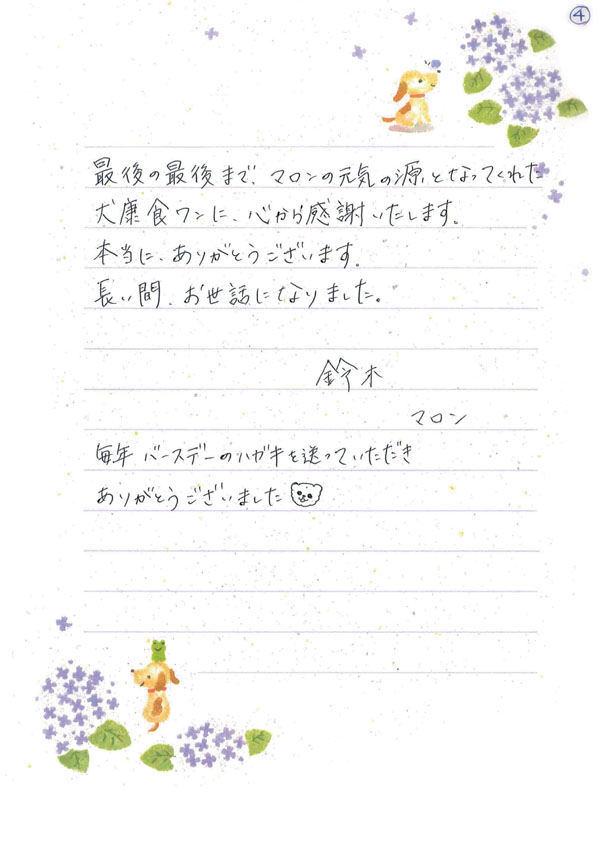 ④
最後の最後まで、マロンの元気の源となってくれた
犬康食ワンに、心から感謝いたします。
本当に、ありがとうございます。
長い間、お世話になりました。
鈴木
マロン
毎年バースデーのハガキを送っていただき
ありがとうございました